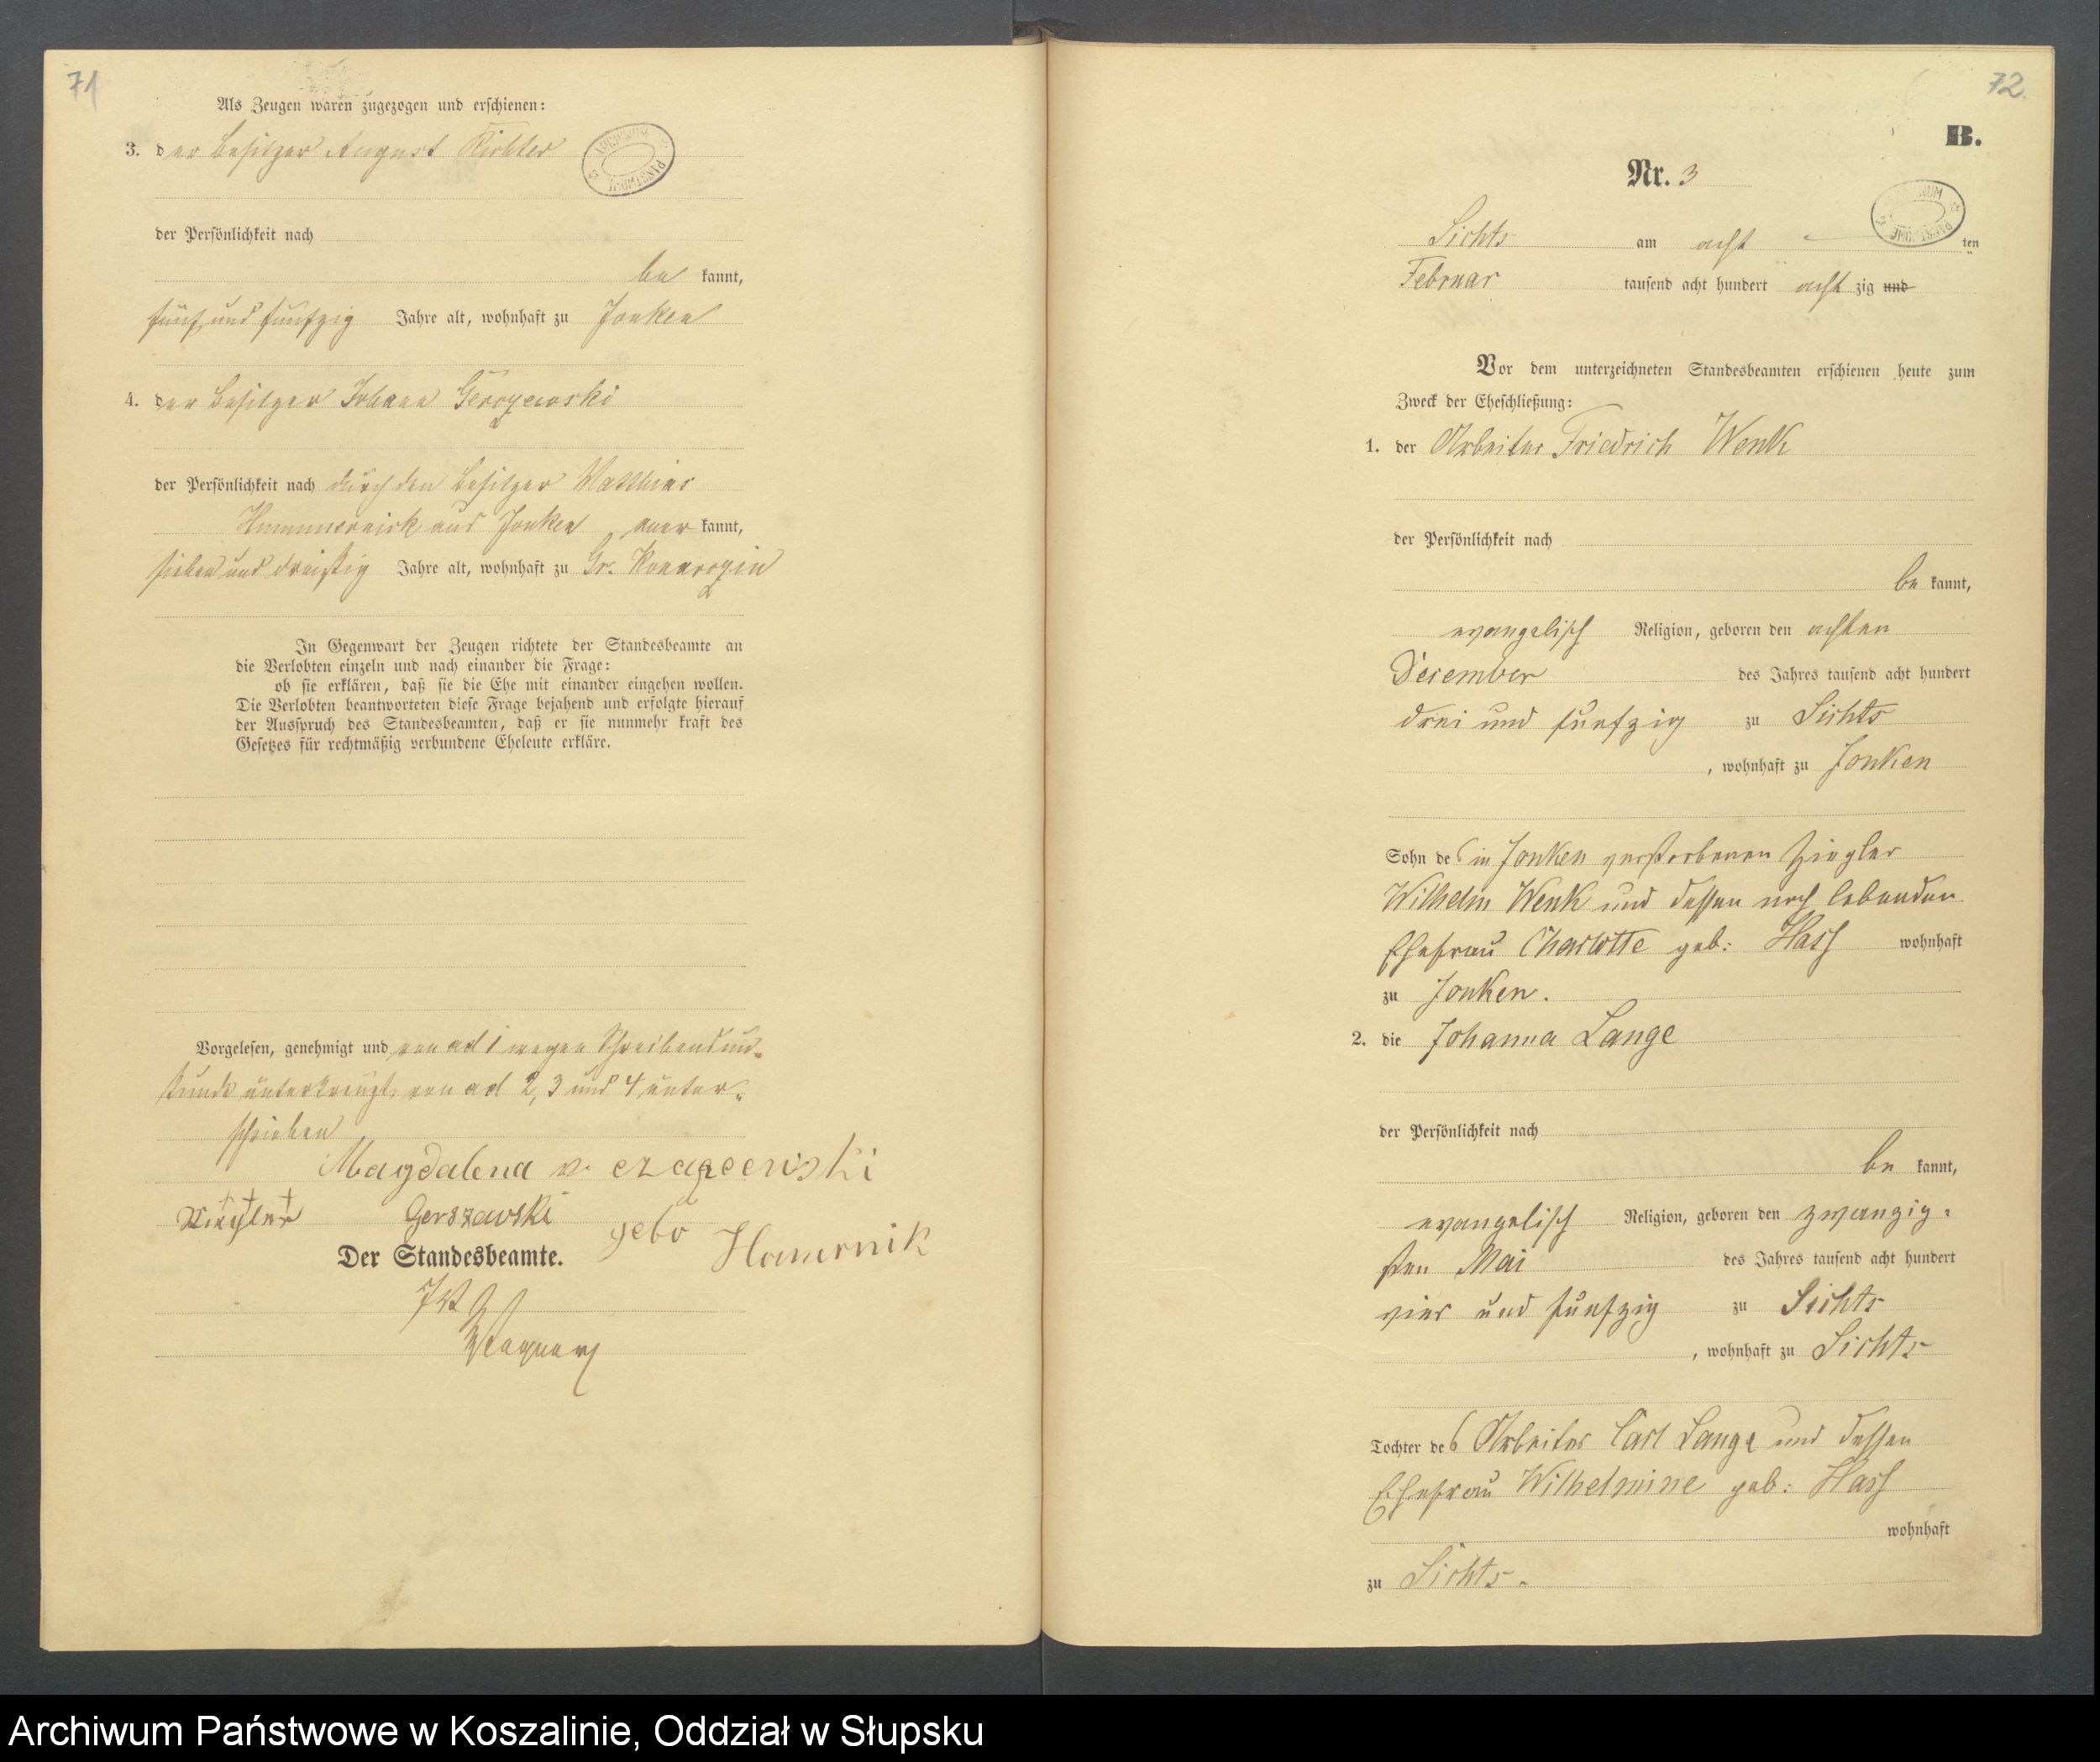 71
Als Zeugen waren zugezogen und erschienen:
3. der Besitzer August Richter
der Persönlichkeit nach
be kannt,
fünf und funfzig Jahre alt, wohnhaft zu Jonken
4. der Besitzer Johann
der Persönlichkeit nach durch den Besitzer Matthias
aus Jonken aner kannt,
sieben und dreißig Jahre alt, wohnhaft zu Gr. Konarczin
In Gegenwart der Zeugen richtete der Standesbeamte an
die Verlobten einzeln und nach einander die Frage:
ob sie erklären, daß sie die Ehe mit einander eingehen wollen.
Die Verlobten beantworteten diese Frage bejahend und erfolgte hierauf
der Ausspruch des Standesbeamten, daß er sie nunmehr kraft des
Gesetzes für rechtmäßig verbundene Eheleute erkläre.
Vorgelesen, genehmigt und von ad 1 wegen Schreibensun-
kunde unterkreuzt, von ad 2, 3 und 4 unter-
schrieben
Magdalena v.
† † †
Gerszewski gebo
Der Standesbeamte.
Wagner
72.
B.
Nr. 3
Sichts am acht ten
Februar tausend acht hundert acht zig und
Vor dem unterzeichneten Standesbeamten erschienen heute zum
Zweck der Eheschließung:
1. der Arbeiter Friedrich Wenk
der Persönlichkeit nach
be kannt,
evangelisch Religion, geboren den achten
December des Jahres tausend acht hundert
drei und funfzig zu Sichts
, wohnhaft zu Jonken
Sohn des in Jonken verstorbenen Ziegler
Wilhelm Wenk und dessen noch lebenden
Ehefrau Charlotte geb: Hass wohnhaft
zu Jonken.
2. die Johanna Lange
der Persönlichkeit nach
be kannt,
evangelisch Religion, geboren den zwanzig-
sten Mai des Jahres tausend acht hundert
vier und funfzig zu Sichts
, wohnhaft zu Sichts
Tochter des Arbeiter Carl Lange und dessen
Ehefrau Wilhelmine geb: Hass
wohnhaft
zu Sichts.
Archiwum Państwowe w Koszalinie, Oddział w Słupsku